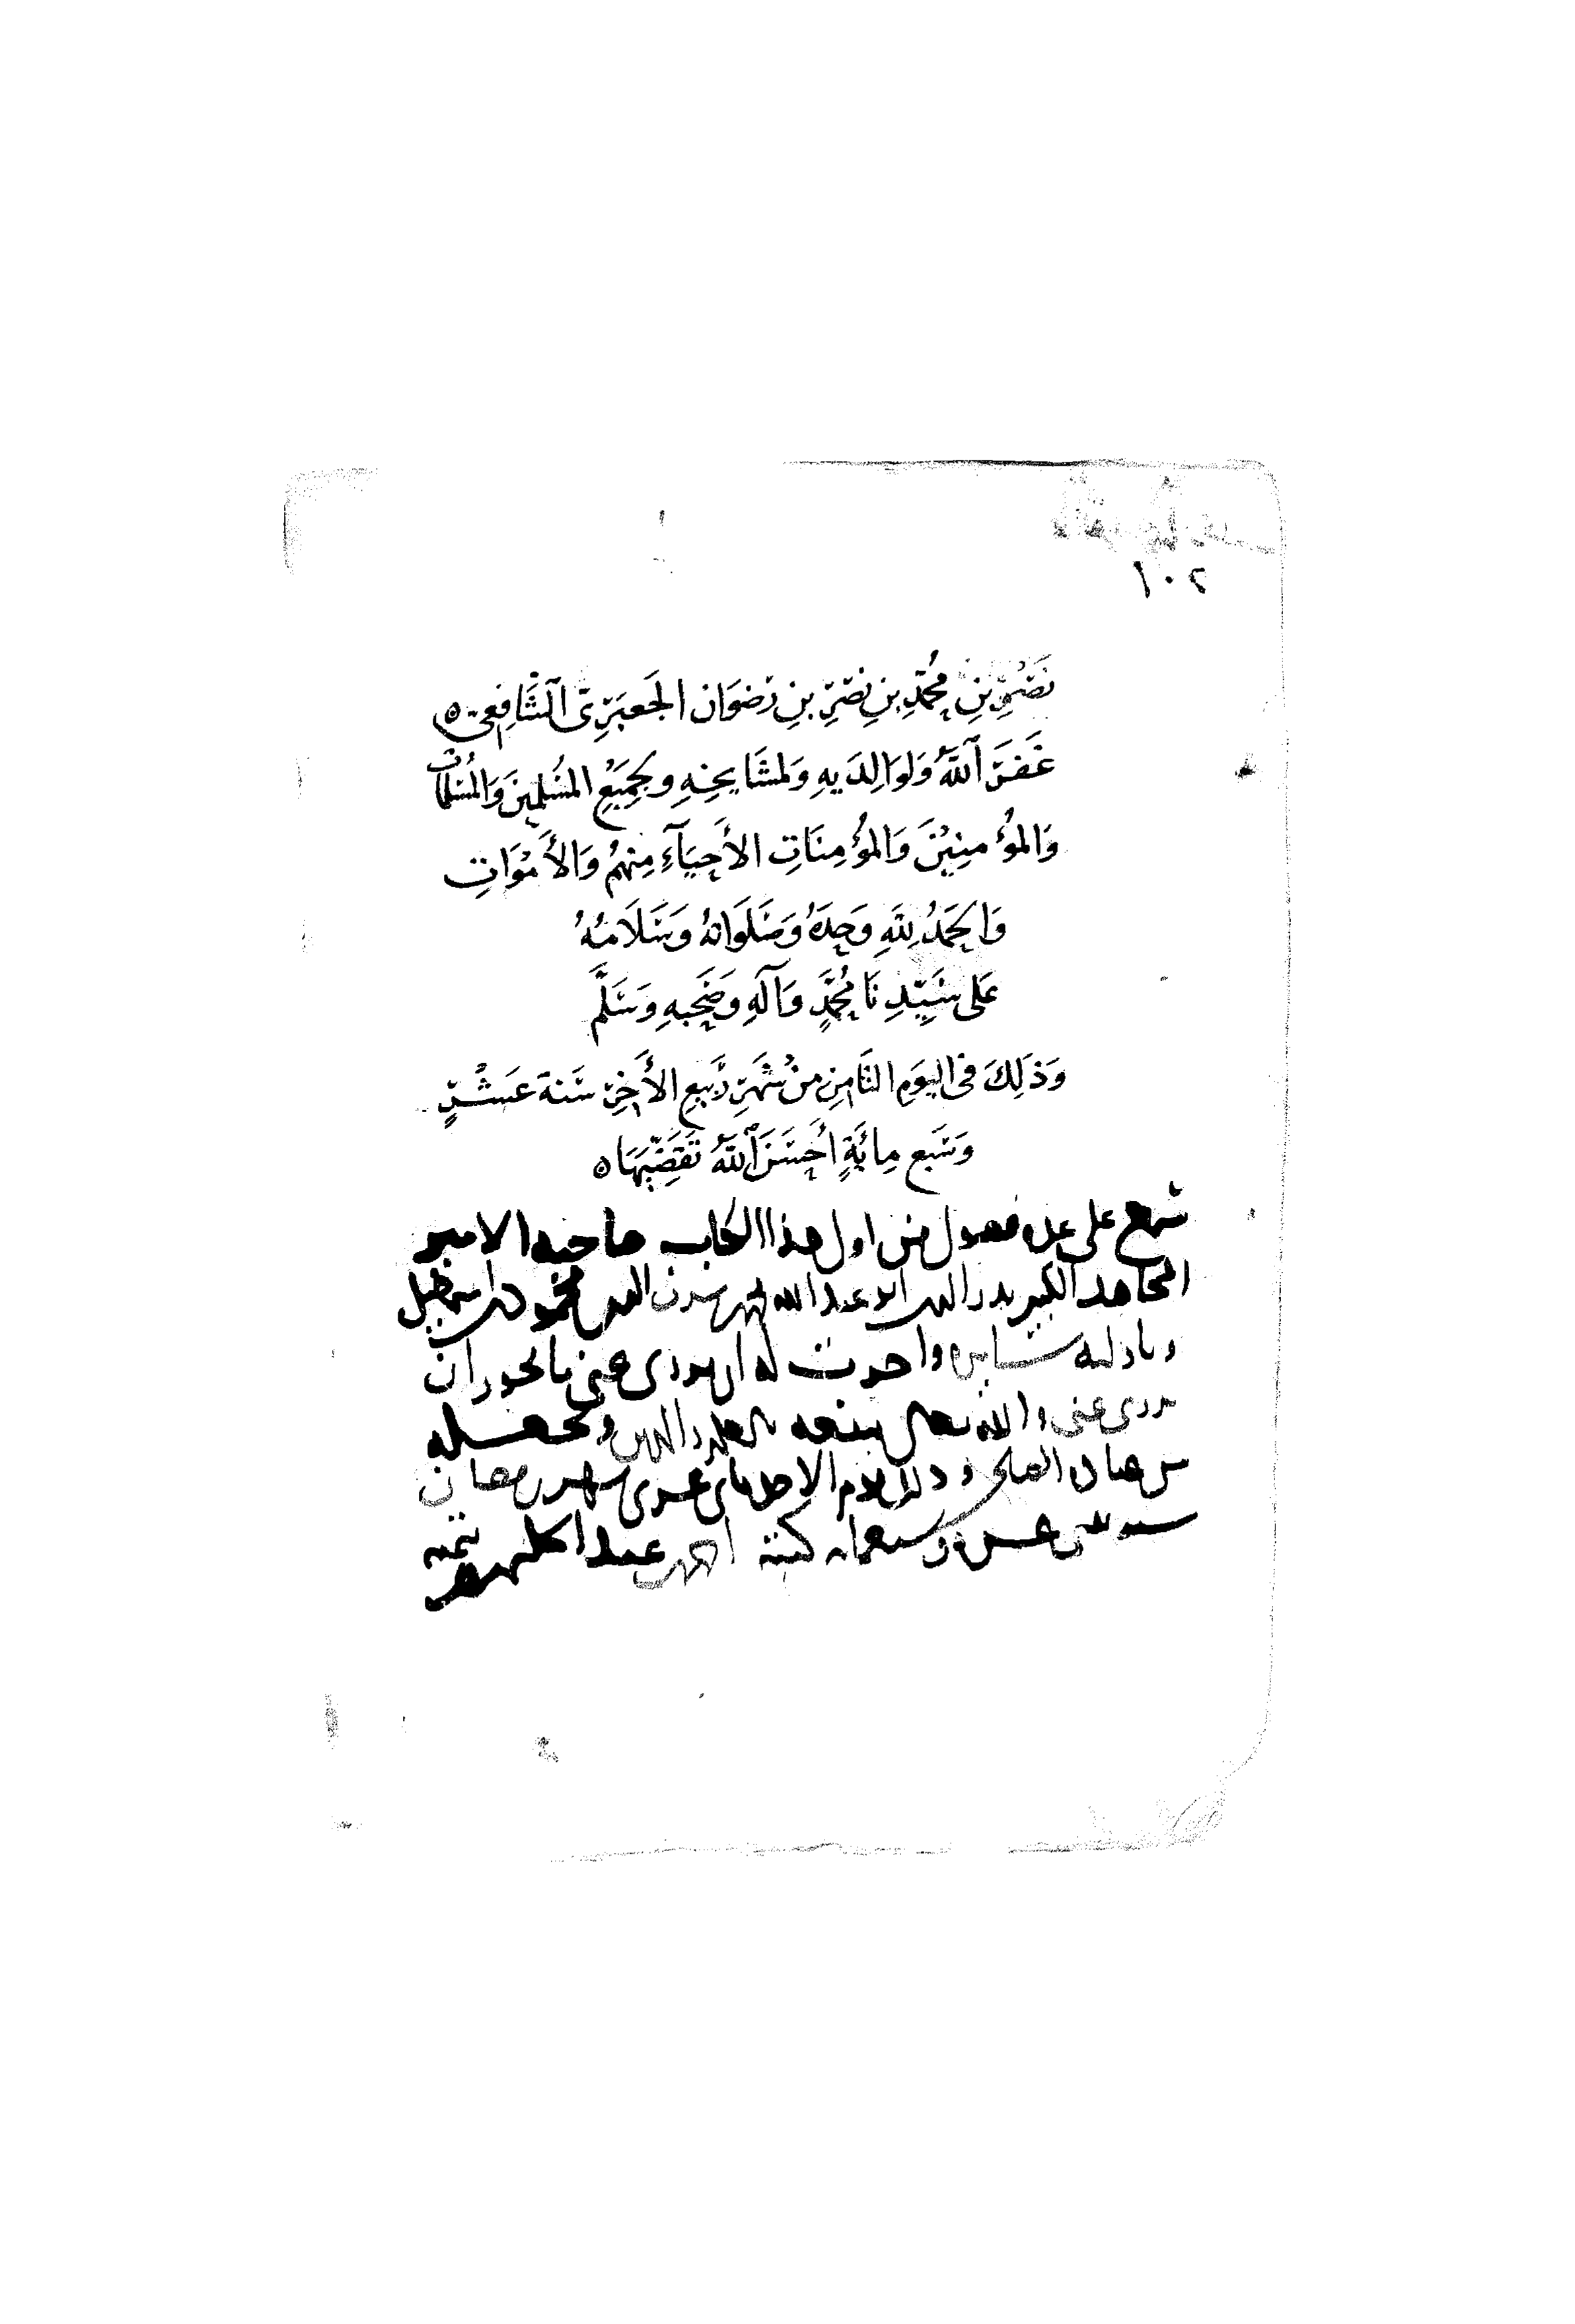 ١٠٢
نَصْرِ بنِ مُحَمَّدِ بنِ نَصْرِ بنِ رَضْوَان الجَعبَرِيّ الشَّافِعِي ه
غَفَرَ ٱللَّهُ وَلِوَالِدَيهِ وَلِمَشَايِخِهِ وَلِجَمِيعِ المُسْلِمِينَ وَالمُسْلِمَاتِ
وَالمُؤْمِنِيْنَ وَالمُؤْمِنَاتِ الأَحيَآءِ مِنهُمْ وَالأَمْوَاتِ
وَالحَمْدُ لِلَّهِ وَحدَهُ وَصَلَوَاتُهُ وَسَلَامُهُ
عَلى سَيِّدِنَا مُحَمَّدٍ وَآلِهِ وَصَحبِهِ وَسَلَّم
وَذَلِكَ فى اليَومِ الثَّامِنِ مِنْ شَهْرِ رَبيعِ الأَخِرِ سَنة عَشْرٍ
وَسَبعِ مِائَةٍ أَحسَنَ ٱللَّهُ تَقَضِّيَهَا ه
سمع على عده فصول من اول هذا الكتاب صاحبه الامير
المجاهد الكبير بدر الدين ابو عبد الله محمد شرف الدين محمود بن اسمعيل
واجزت له ان يروى عنى ما يجوز ان
يروى عنى والله تعالى ينفعه بالعلم والدين ويجعله
من عباده الصالحين وذلك يوم الاحد ثانى عشرى شهر رمضان
سنه وسبعمايه كتبه احمد